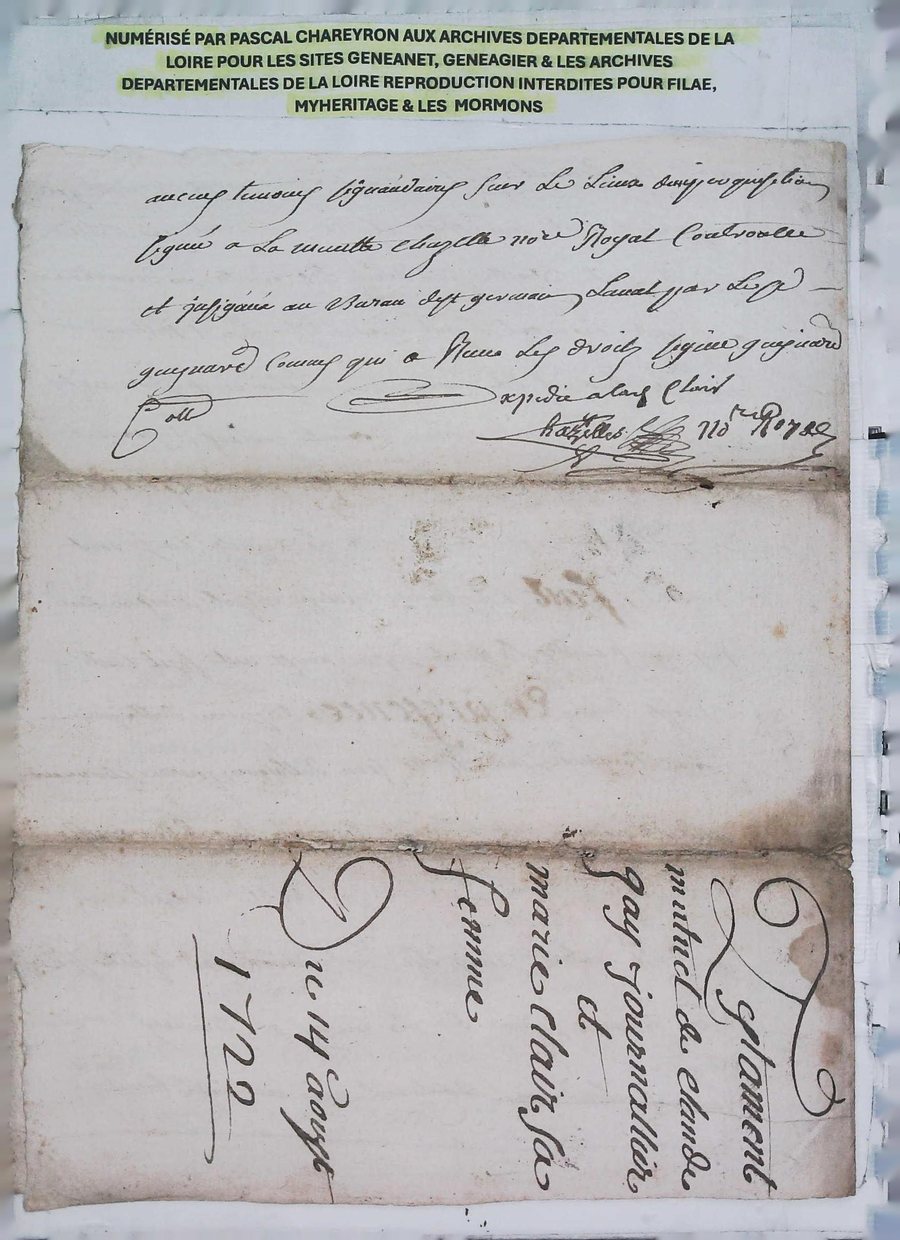 NUMÉRISÉ PAR PASCAL CHAREYRON AUX ARCHIVES DEPARTEMENTALES DE LA
LOIRE POUR LES SITES GENEANET, GENEAGIER & LES ARCHIVES
DEPARTEMENTALES DE LA LOIRE REPRODUCTION INTERDITES POUR FILAE,
MYHERITAGE & LES MORMONS
signé a La minutte chazelle no.re Royal Controolle
et insignué au Bureau de st germain Laval par Le sr
guignard Commis qui a Receu Les droits signé guignard
Expedié a lad Clair
Coll
Chazelles no.re Royal
Testament
mutuel de claude
gay Journallier
et
marie clair sa
femme
Du 14 aoust
1722